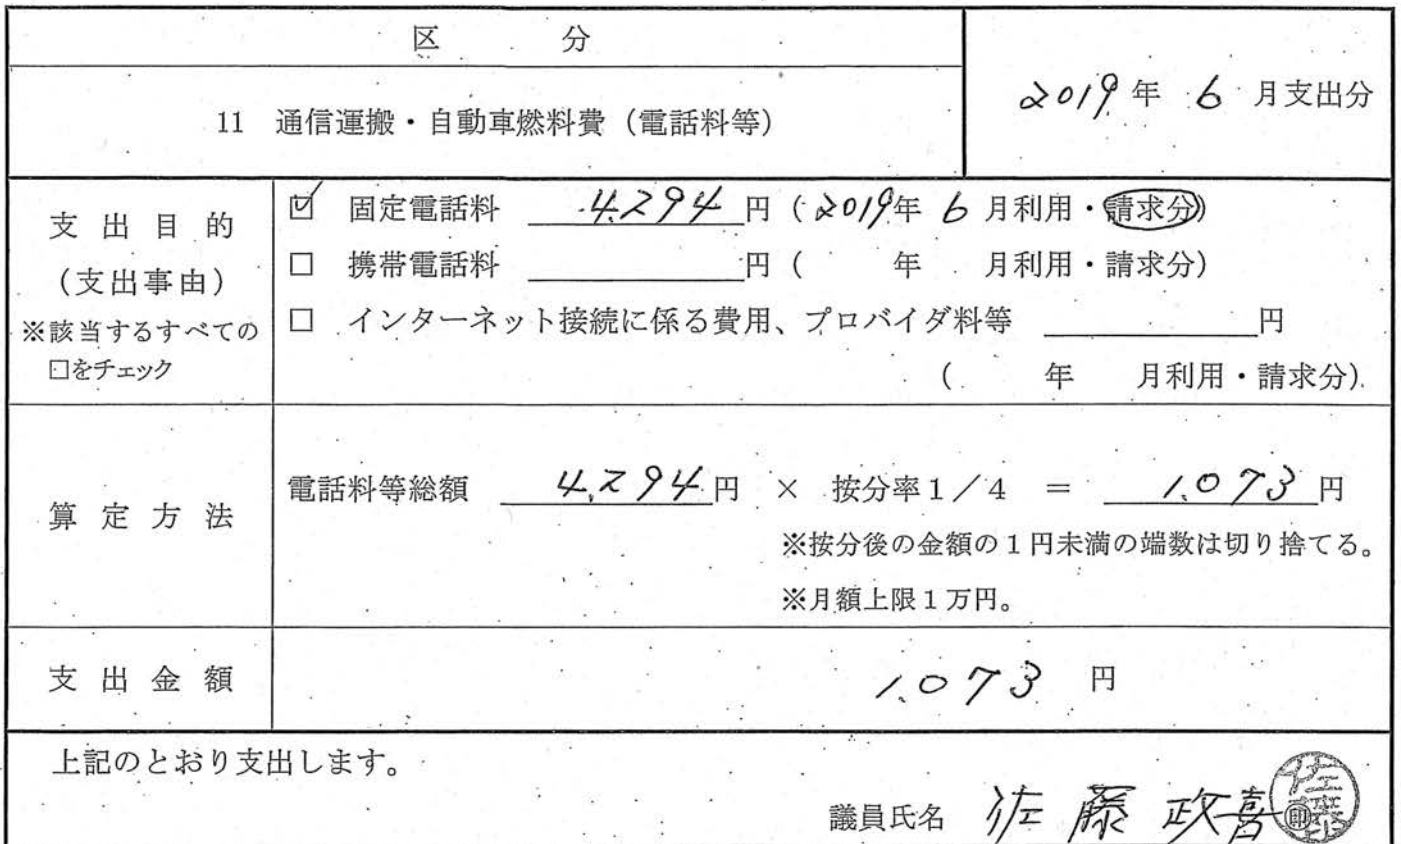 区 分
2019年 6 月支出分
11 通信運搬・自動車燃料費（電話料等）
支出目的
（支出事由）
※該当するすべての
□をチェック
☑ 固定電話料 4,294円（2019年 6 月利用・請求分）
□ 携帯電話料 円（ 年 月利用・請求分）
□ インターネット接続に係る費用、プロバイダ料等 円
（ 年 月利用・請求分）
算定方法
電話料等総額 4,294円 × 按分率1／4 ＝ 1,073円
※按分後の金額の1円未満の端数は切り捨てる。
※月額上限1万円。
支出金額
1,073 円
上記のとおり支出します。
議員氏名 佐藤 政喜 ㊞